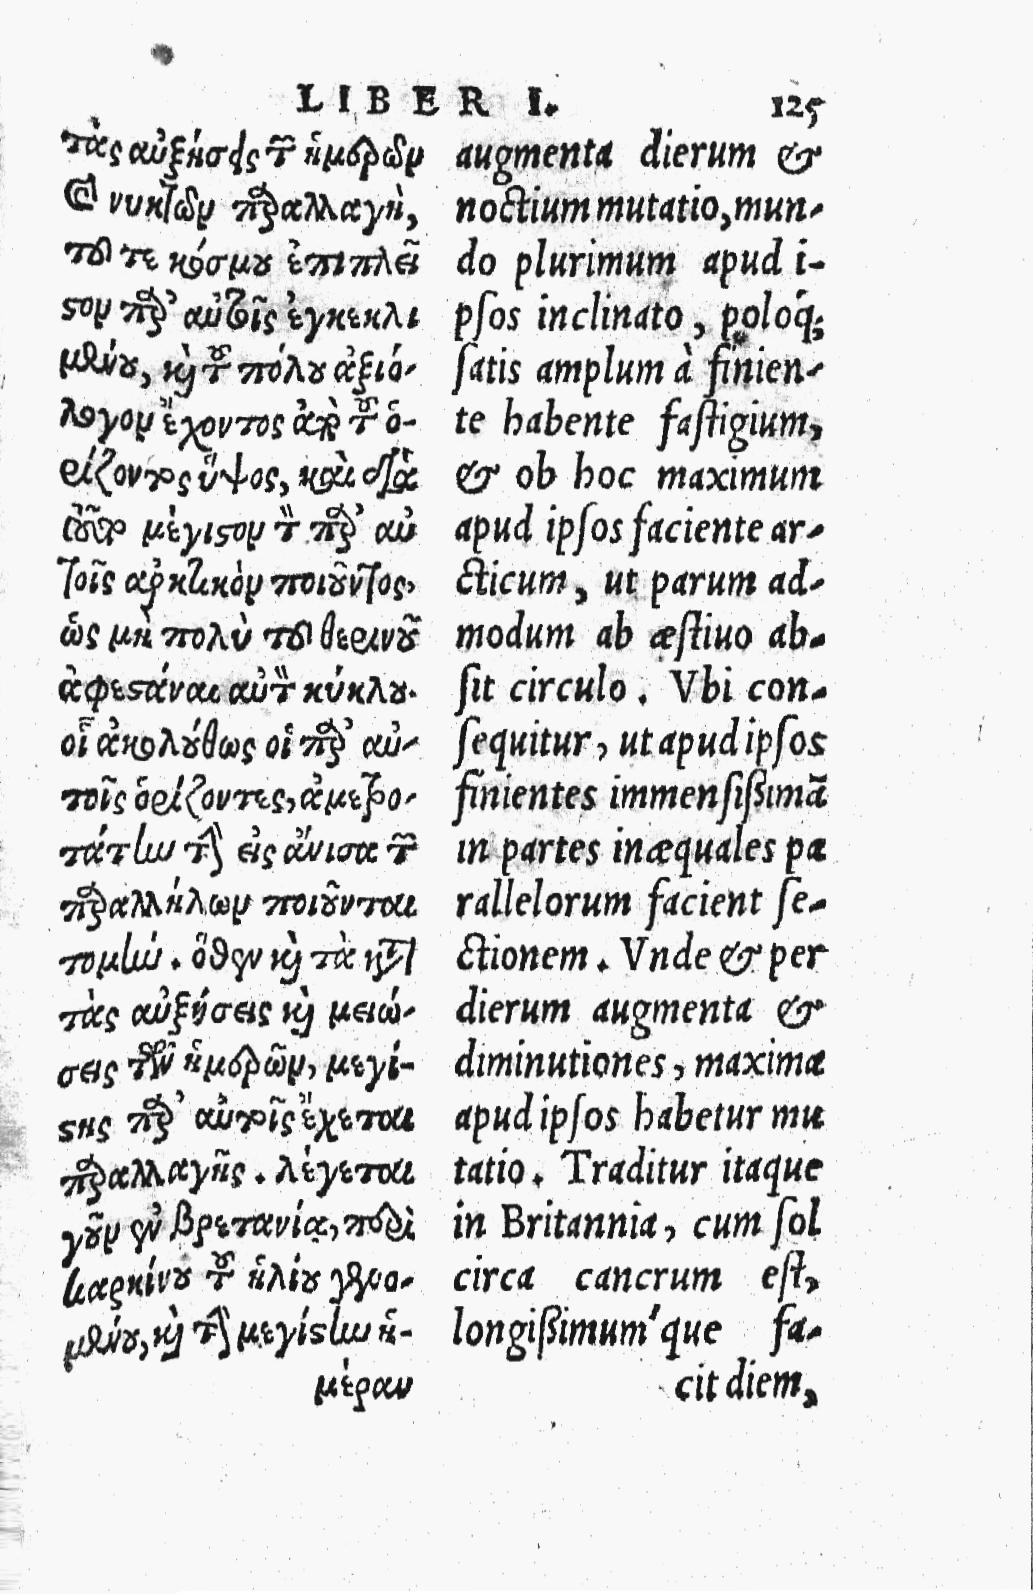 LIBER I. 125
τὰς αὐξήσεις τῶν ἡμερῶν
καὶ νυκτῶν παραλλαγὴ,
τοῦ τε κόσμου ἐπιπλεῖ
στον παρ' αὐτοῖς ἐγκεκλι
μένου, καὶ τοῦ πόλου ἀξιό-
λογον ἔχοντος ἀπὸ τοῦ ὁ-
ρίζοντος ὕψος, καὶ διὰ
τοῦτο μέγιστον τὸν παρ' αὐ
τοῖς ἀρκτικὸν ποιοῦντος,
ὡς μὴ πολὺ τοῦ θερινοῦ
ἀφεστάναι αὐτὸν κύκλου.
οἷ ἀκολούθως οἱ παρ' αὐ-
τοῖς ὁρίζοντες, ἀμετρο-
τάτην τὴν εἰς ἄνισα τῶν
παραλλήλων ποιοῦνται
τομήν. ὅθεν καὶ τὰ κατὰ
τὰς αὐξήσεις καὶ μειώ-
σεις τῶν ἡμερῶν, μεγί-
στης παρ' αὐτοῖς ἔχεται
παραλλαγῆς. λέγεται
γοῦν ἐν βρετανίᾳ, περὶ
καρκίνου τοῦ ἡλίου γενο-
μένου, καὶ τὴν μεγίστην ἡ-
μέραν
augmenta dierum &
noctium mutatio, mun-
do plurimum apud i-
pſos inclinato, poloq́;
ſatis amplum à finien-
te habente faſtigium,
& ob hoc maximum
apud ipſos faciente ar-
cticum, ut parum ad-
modum ab æſtiuo ab-
ſit circulo. Vbi con-
ſequitur, ut apud ipſos
finientes immenſiſsimã
in partes inæquales pa
rallelorum facient ſe-
ctionem. Vnde & per
dierum augmenta &
diminutiones, maximæ
apud ipſos habetur mu
tatio. Traditur itaque
in Britannia, cum ſol
circa cancrum eſt,
longiſsimum'que fa-
cit diem,